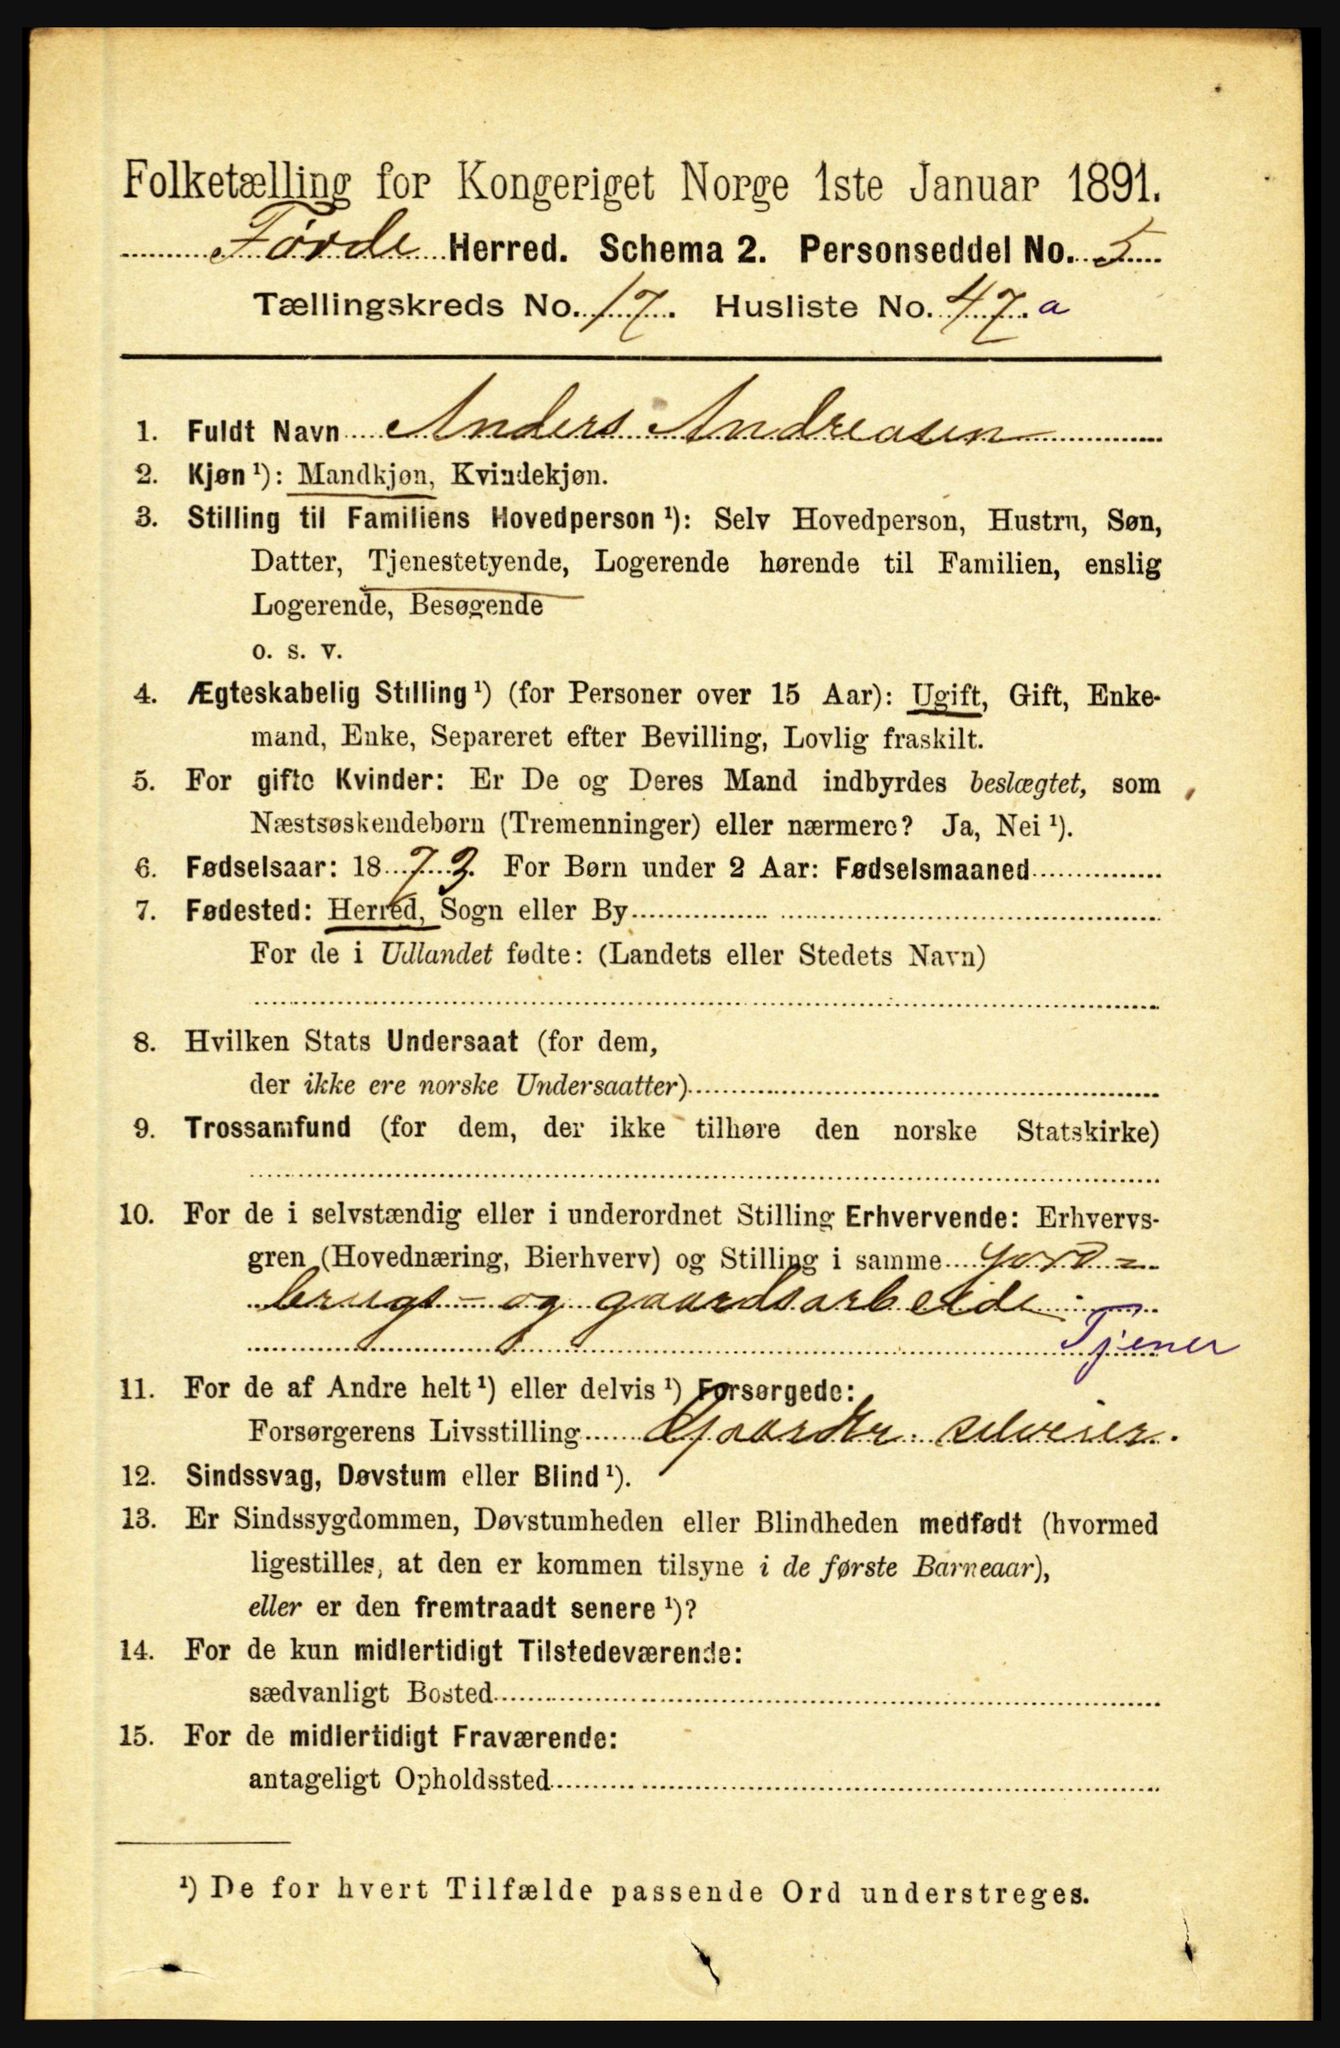 Folketælling for Kongeriget Norge 1ste Januar 1891.
Førde Herred. Schema 2. Personseddel No. 5
Tællingskreds No. 17. Husliste No. 47. a
1. Fuldt Navn Anders Andreasen
2. Kjøn ¹): Mandkjøn, Kvindekjøn.
3. Stilling til Familiens Hovedperson ¹): Selv Hovedperson, Hustru, Søn,
Datter, Tjenestetyende, Logerende hørende til Familien, enslig
Logerende, Besøgende
o. s. v.
4. Ægteskabelig Stilling ¹) (for Personer over 15 Aar): Ugift, Gift, Enke-
mand, Enke, Separeret efter Bevilling, Lovlig fraskilt.
5. For gifte Kvinder: Er De og Deres Mand indbyrdes beslægtet, som
Næstsøskendebørn (Tremenninger) eller nærmere? Ja, Nei ¹).
6. Fødselsaar: 1873. For Børn under 2 Aar: Fødselsmaaned
7. Fødested: Herred, Sogn eller By
For de i Udlandet fødte: (Landets eller Stedets Navn)
8. Hvilken Stats Undersaat (for dem,
der ikke ere norske Undersaatter)
9. Trossamfund (for dem, der ikke tilhøre den norske Statskirke)
10. For de i selvstændig eller i underordnet Stilling Erhvervende: Erhvervs-
gren (Hovednæring, Bierhverv) og Stilling i samme Jord-
brugs- og gaardsarbeide
Tjener
11. For de af Andre helt ¹) eller delvis ¹) Forsørgede:
Forsørgerens Livsstilling Gaardbr. selveier.
12. Sindssvag, Døvstum eller Blind ¹).
13. Er Sindssygdommen, Døvstumheden eller Blindheden medfødt (hvormed
ligestilles, at den er kommen tilsyne i de første Barneaar),
eller er den fremtraadt senere ¹)?
14. For de kun midlertidigt Tilstedeværende:
sædvanligt Bosted
15. For de midlertidigt Fraværende:
antageligt Opholdssted
¹) De for hvert Tilfælde passende Ord understreges.